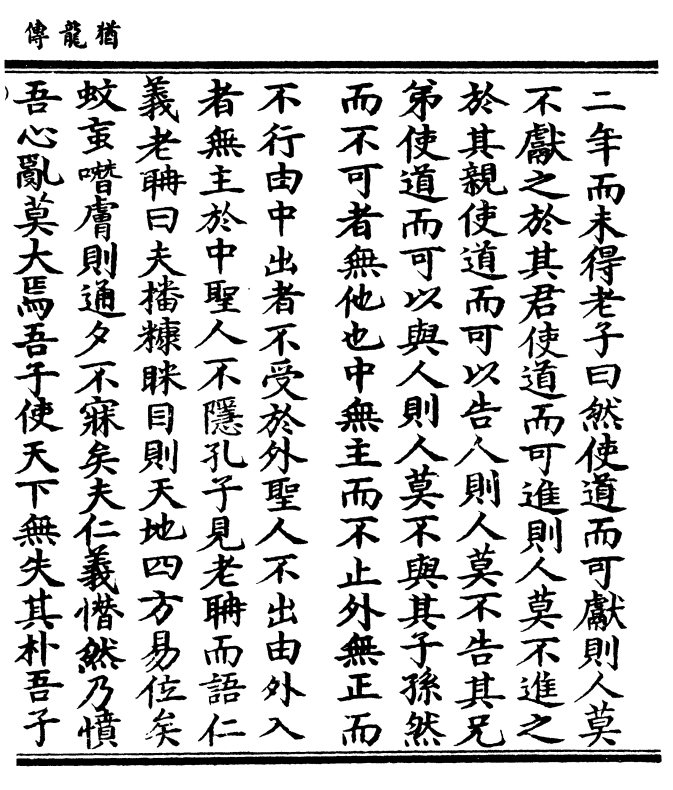 猶龍傳
二年而未得老子曰然使道而可獻則人莫
不獻之於其君使道而可進則人莫不進之
於其親使道而可以告人則人莫不告其兄
弟使道而可以與人則人莫不與其子孫然
而不可者無他也中無主而不止外無正而
不行由中出者不受於外聖人不出由外入
者無主於中聖人不隱孔子見老聃而語仁
義老聃曰夫播糠眯目則天地四方易位矣
蚊䖟噆膚則通夕不寐矣夫仁義憯然乃憤
吾心亂莫大焉吾子使天下無失其朴吾子